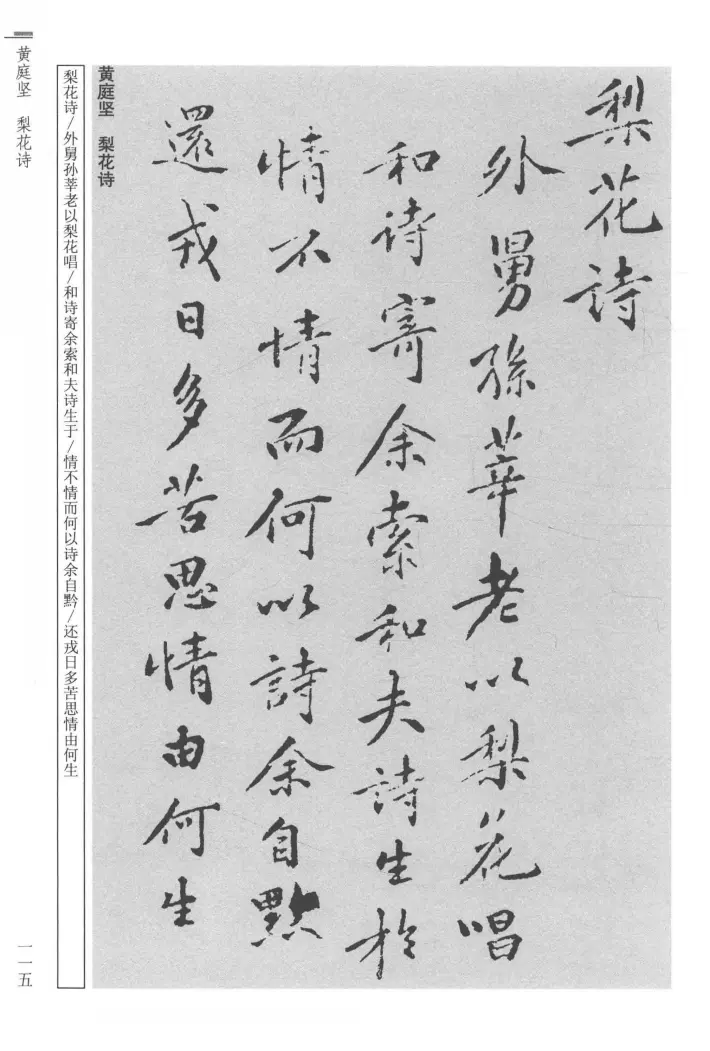 梨花詩
外舅孫莘老以梨花唱
和詩寄余索和夫詩生於
情不情而何以詩余自黔
還戎日多苦思情由何生
黄庭坚 梨花诗
梨花诗/外舅孙莘老以梨花唱/和诗寄余索和夫诗生于/情不情而何以诗余自黔/还戎日多苦思情由何生
黄庭坚 梨花诗
一一五